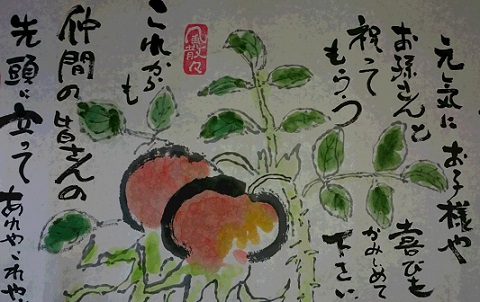 元気に お子様や
お孫さんと
祝って
もらう
喜びを
かみしめて
下さい
これからも
仲間の皆さんの
先頭に立って あれやこれや